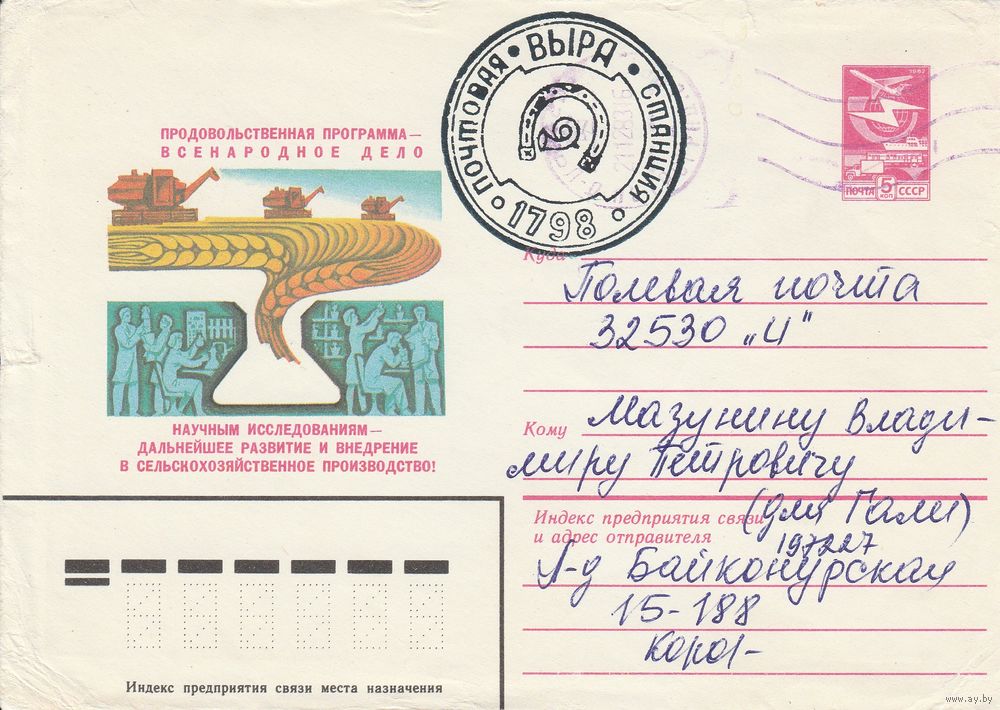 ПРОДОВОЛЬСТВЕННАЯ ПРОГРАММА—
ВСЕНАРОДНОЕ ДЕЛО
НАУЧНЫМ ИССЛЕДОВАНИЯМ—
ДАЛЬНЕЙШЕЕ РАЗВИТИЕ И ВНЕДРЕНИЕ
В СЕЛЬСКОХОЗЯЙСТВЕННОЕ ПРОИЗВОДСТВО!
ПОЧТОВАЯ • ВЫРА • СТАНЦИЯ
• 1798 •
1982
ПОЧТА 5 КОП СССР
Куда
Полевая почта
32530 „Ч"
Кому Мазунину Влади-
миру Петровичу
(для Гали)
Индекс предприятия связи
и адрес отправителя
197227
Л-д Байконурская
15-188
Корот-
Индекс предприятия связи места назначения
www.ay.by